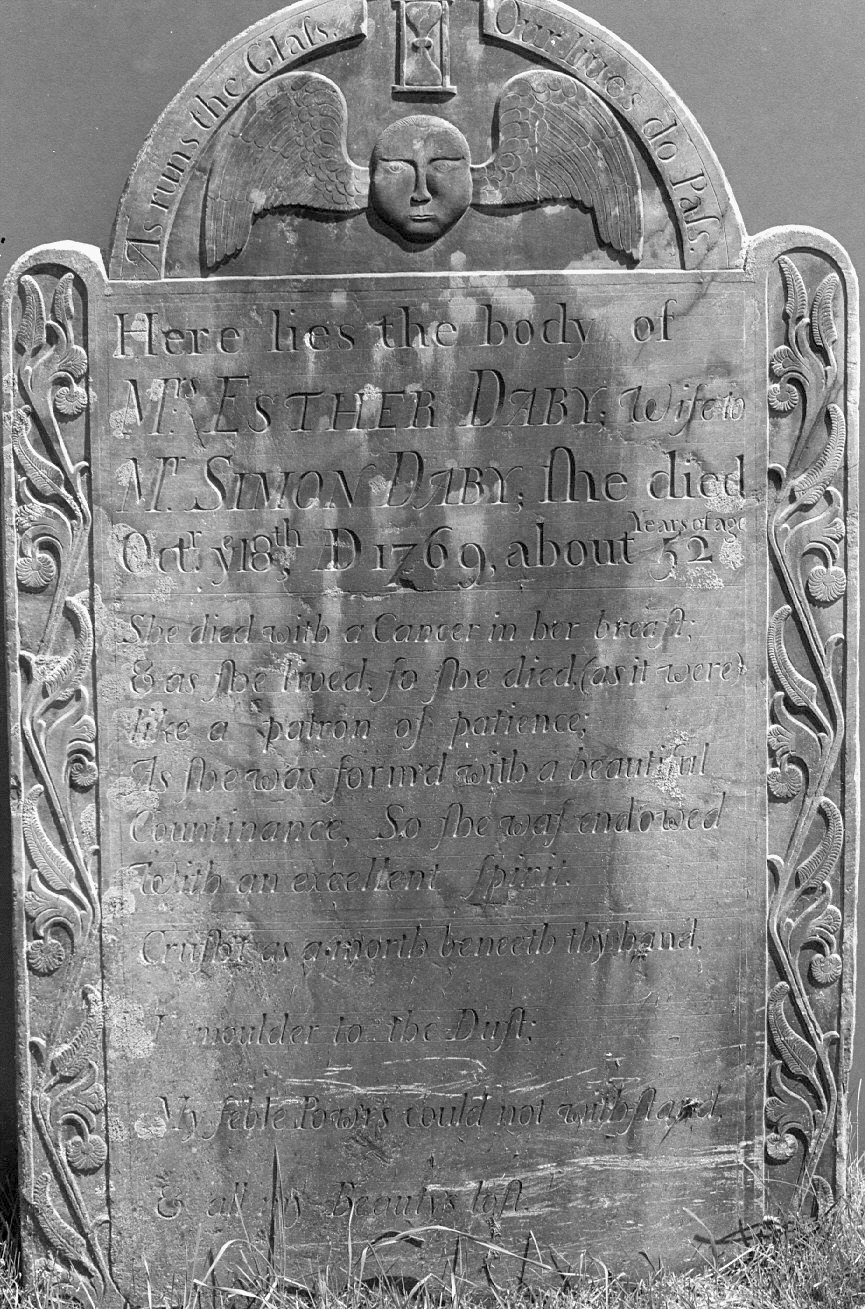 As runs the Glaſs. Our lives do Paſs.
Here lies the body of
Mrs. ESTHER DABY, Wife to
Mr. SIMON DABY, ſhe died
Octr. ye 18th, D 1769, about 52 Years of age
She died with a Cancer in her breaſt;
& as ſhe lived, ſo ſhe died, (as it were)
like a patron of patience;
As ſhe was form'd with a beautiful
Countinance, So ſhe waſ endowed
With an excellent ſpirit.
Cruſht as a moth beneeth thy hand,
I moulder to the Duſt;
My feble Powrs could not withſtand,
& all my Beautys loſt.